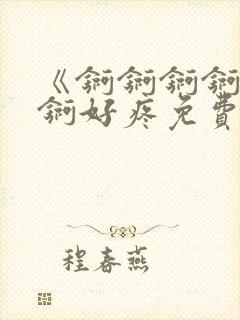 《锕锕锕锕
锕好疼免費
程春燕